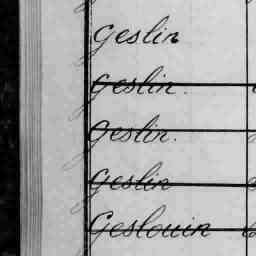 Geslin
Geslin.
Geslin.
Geslin
Geslouin